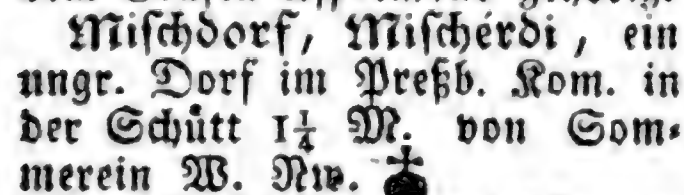 Mischdorf, Mischérdi, ein
ungr. Dorf im Preßb. Kom. in
der Schütt 1¼ M. von Som-
merein W. Nw.